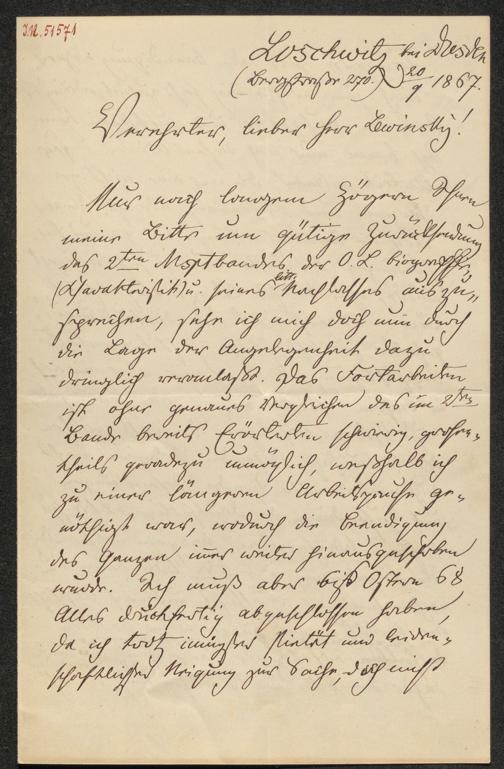 I.N. 51571
Loschwitz bei Dresden
(Bergstraße 270.) 20/9 1867.
Verehrter, lieber Herr Lewinsky!
Nur nach langem Zögern Ihnen
meine Bitte um gütige Zurücksendung
des 2ten Textbandes der O. L. biogra
(Charakteristik) u. seines litt. Nachlasses auszu-
sprechen, sehe ich mich doch nun durch
die Lage der Angelegenheit dazu
dringlich veranlaßt. Das Fortarbeiten
ist ohne genaues Vergleichen des im 2ten
Bande bereits Erörterten schwierig, großen-
theils geradezu unmöglich, weßhalb ich
zu einer längeren Arbeitspause ge-
nöthigt war, wodurch die Beendigung
des Ganzen immer weiter hinausgeschoben
wurde. Ich muß aber biß Ostern 68
Alles druckfertig abgeschlossen haben,
da ich trotz innigster Pietät und leiden-
schaftlichster Neigung zur Sache, doch nicht